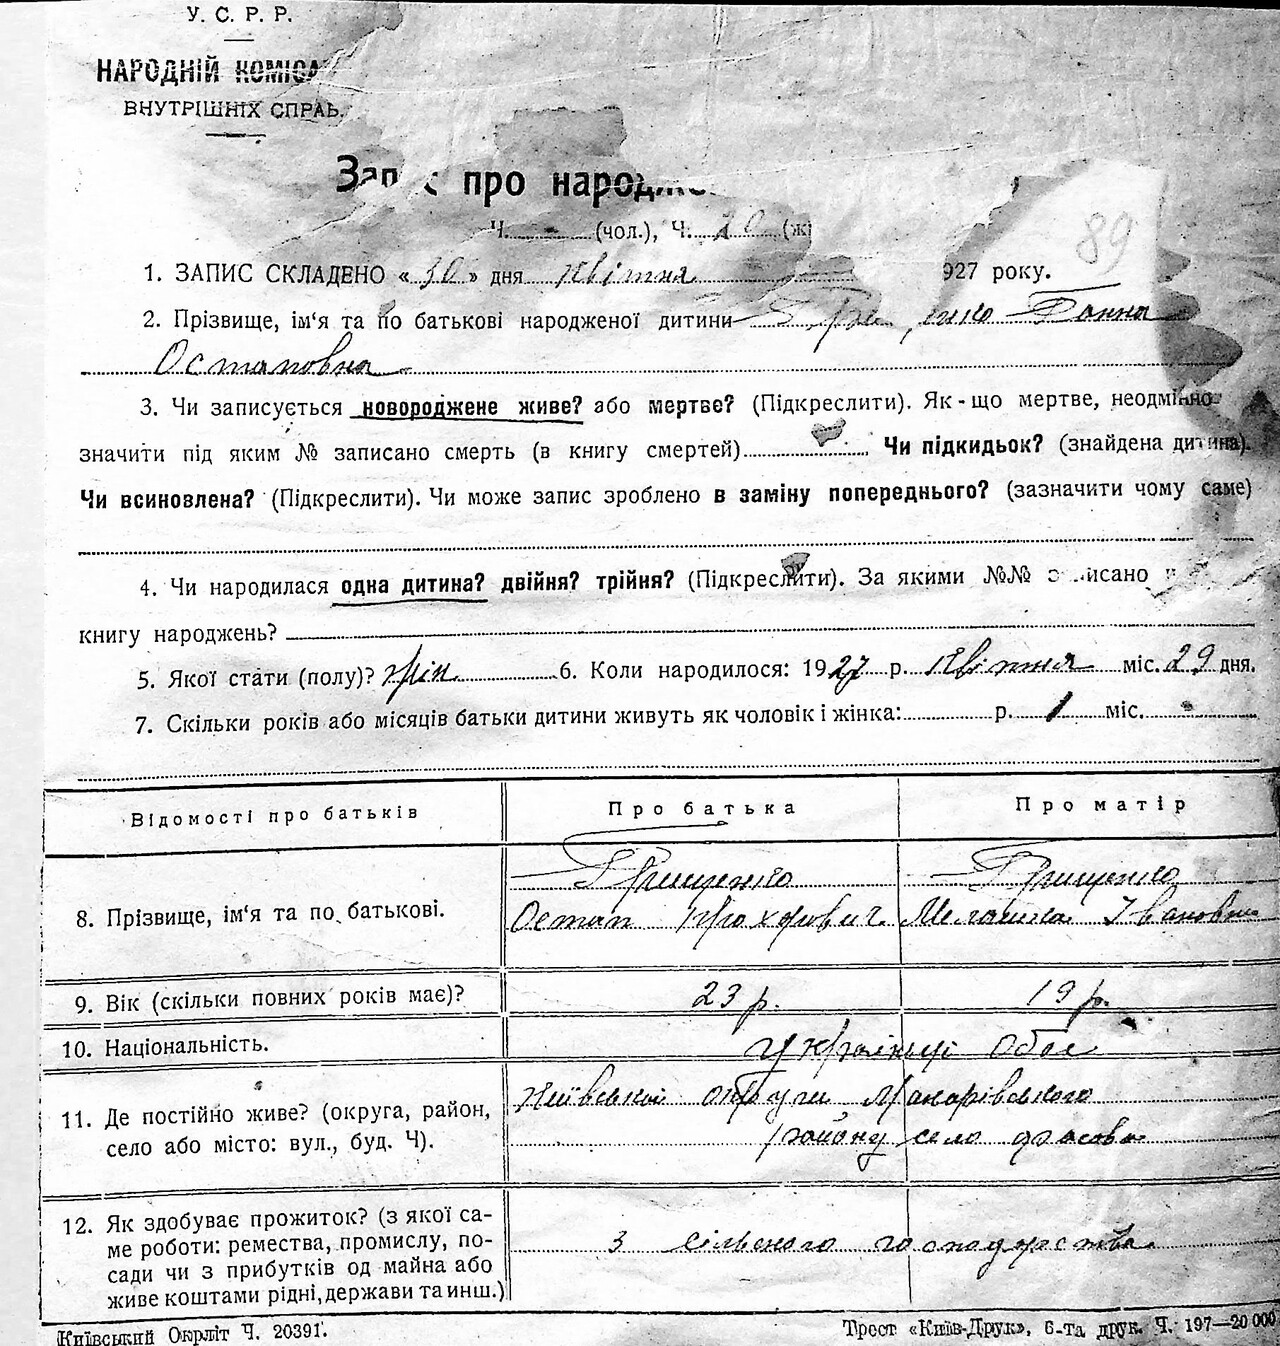 У. С. Р. Р.
НАРОДНІЙ КОМІСА
ВНУТРІШНІХ СПРАВ.
Запис про народже
Ч. - (чол.), Ч. 20 (жі
89
1. ЗАПИС СКЛАДЕНО «30» дня квітня 927 року.
2. Прізвище, ім‘я та по батькові народженої дитини Гри енко Ганна
Остаповна
3. Чи записується новороджене живе? або мертве? (Підкреслити). Як-що мертве, неодмінно
значити під яким № записано смерть (в книгу смертей) Чи підкидьок? (знайдена дитина).
Чи всиновлена? (Підкреслити). Чи може запис зроблено в заміну попереднього? (зазначити чому саме)
4. Чи народилася одна дитина? двійня? трійня? (Підкреслити). За якими №№ записано
книгу народжень?
5. Якої стати (полу)? жін. 6. Коли народилося: 1927 р. квітня міс. 29 дня.
7. Скільки років або місяців батьки дитини живуть як чоловік і жінка: р. 1 міс. -
Відомості про батьків Про батька Про матір
Грищенко Грищенко
8. Прізвище, ім‘я та по батькові. Остап Прохорович Мелашка Івановна
9. Вік (скільки повних років має)? 23 р. 19 р.
10. Національність. Українці обоє
11. Де постійно живе? (округа, район, Київської округи, Макарівського
село або місто: вул., буд. Ч). району село
12. Як здобуває прожиток? (з якої са-
ме роботи: ремества, промислу, по- З сільского господарства
сади чи з прибутків од майна або
живе коштами рідні, держави та инш.)
Київський Окрліт Ч. 20391. Трест «Київ-Друк», 6-та друк. Ч. 197—20 000